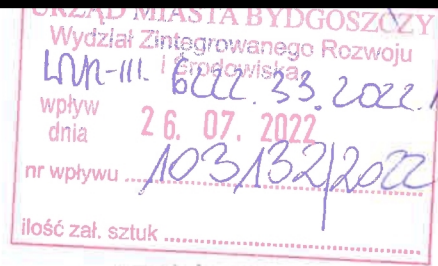 URZĄD MIASTA BYDGOSZCZY
Wydział Zintegrowanego Rozwoju
i Środowiska
6222.33.2022.
wpływ
dnia 26. 07. 2022
nr wpływu 103132/2022
ilość zał. sztuk